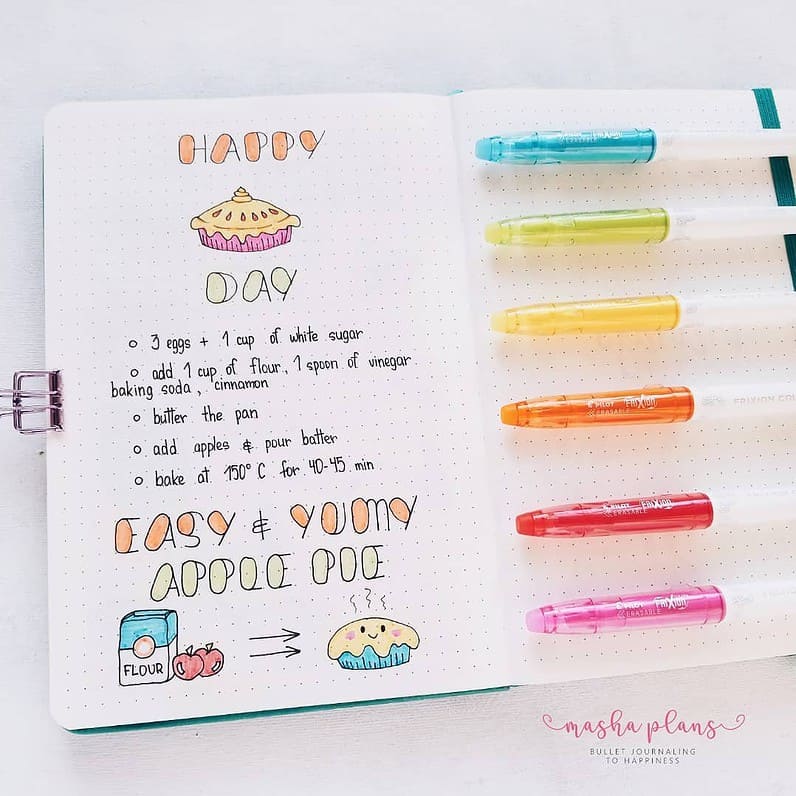 HAPPY
DAY
3 eggs + 1 cup of white sugar
add 1 cup of flour, 1 spoon of vinegar
baking soda, cinnamon
butter the pan
add apples & pour batter
bake at 150° C for 40-45 min
EASY & YUMY
APPLE PIE
FLOUR
FRIXION
PILOT FRIXION
ERASABLE
FRIXION
PILOT FRIXION
ERASABLE
PILOT FRIXION
ERASABLE
masha plans
BULLET JOURNALING
TO HAPPINESS